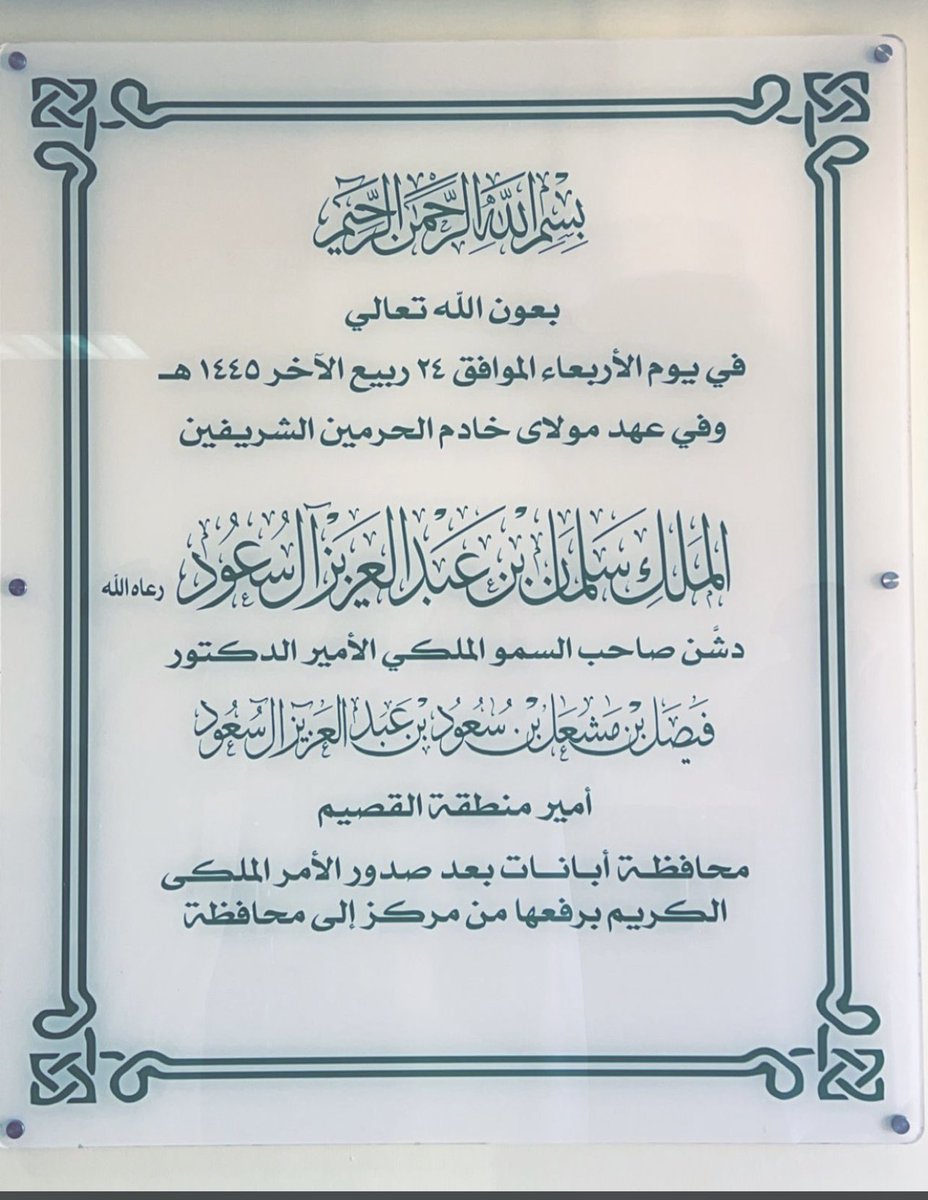 بسم الله الرحمن الرحيم
بعون الله تعالي
في يوم الأربعاء الموافق ٢٤ ربيع الآخر ١٤٤٥ هـ
وفي عهد مولاى خادم الحرمين الشريفين
الملك سلمان بن عبد العزيز آل سعود رعاه الله
دشَّن صاحب السمو الملكي الأمير الدكتور
فيصل بن مشعل بن سعود بن عبد العزيز آل سعود
أمير منطقة القصيم
محافظة أبانات بعد صدور الأمر الملكى
الكريم برفعها من مركز إلى محافظة